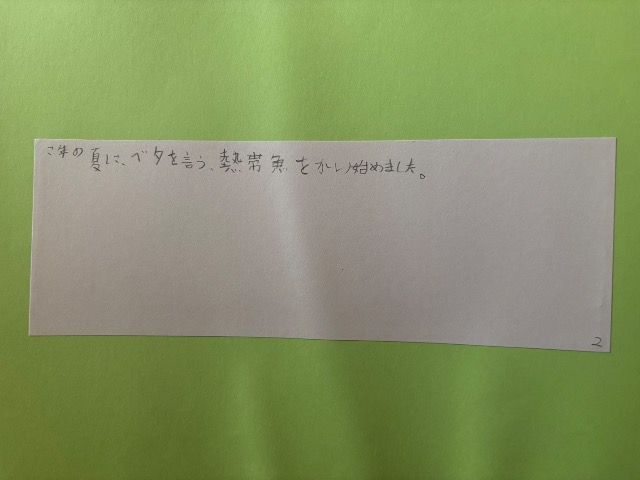 こ年の夏に、ベタを言う、熱帯魚をかい始めました。
2